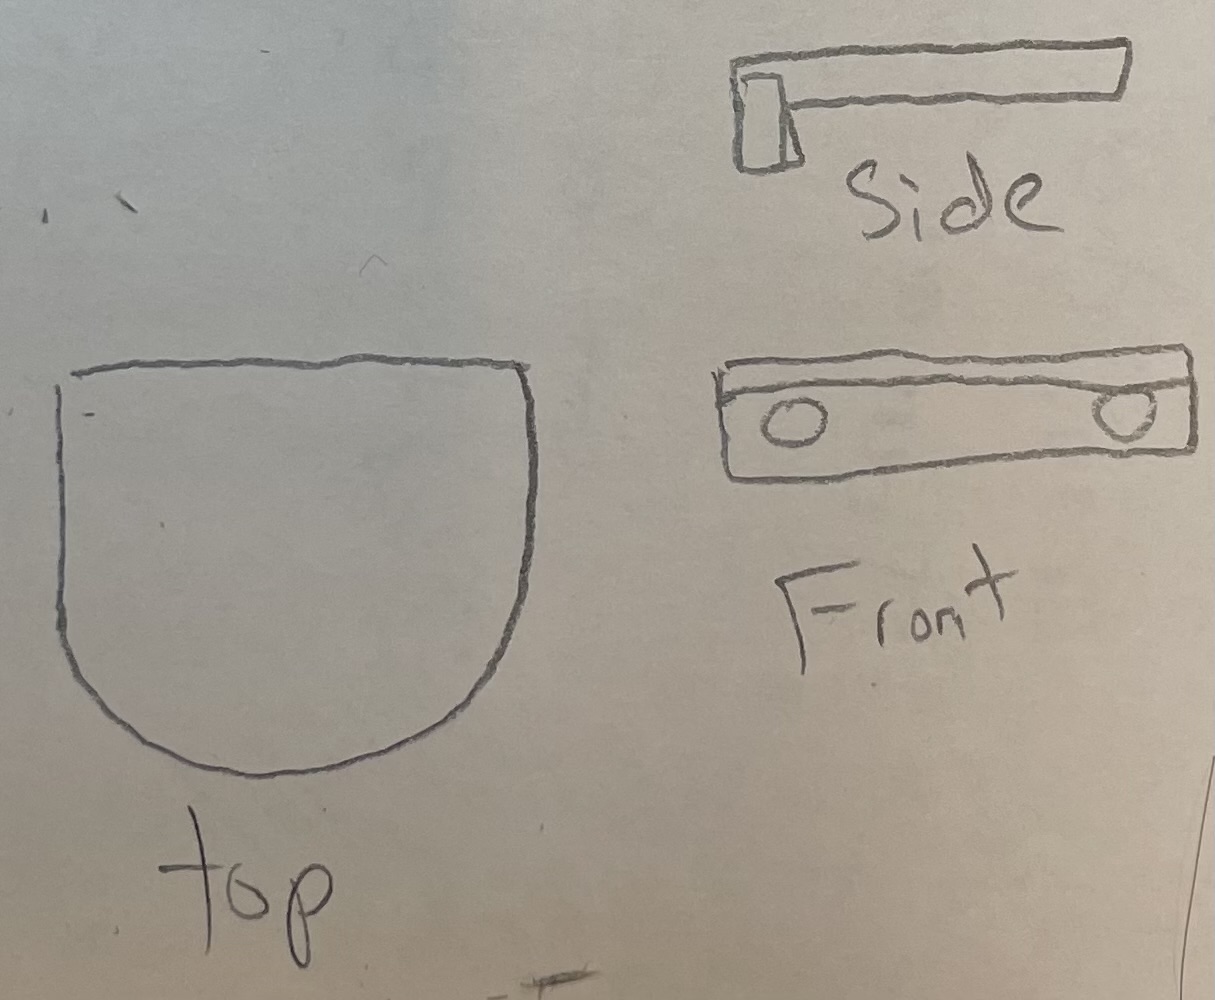 Side
Front
top